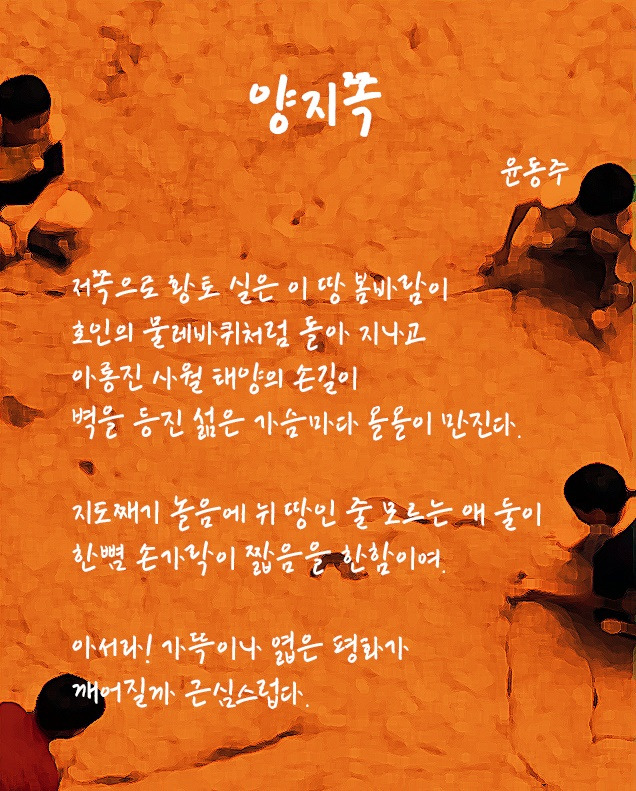 양지쪽
윤동주
저쪽으로 황토 실은 이 땅 봄바람이
호인의 물레바퀴처럼 돌아 지나고
아롱진 사월 태양의 손길이
벽을 등진 섧은 가슴마다 올올이 만진다.
지도째기 놀음에 뉘 땅인 줄 모르는 애 둘이
한뼘 손가락이 짧음을 한함이여.
아서라! 가뜩이나 엷은 평화가
깨어질까 근심스럽다.